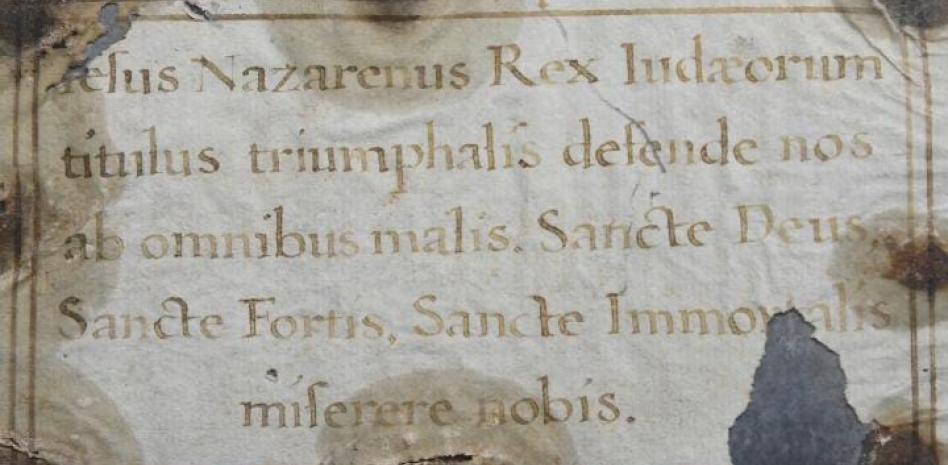 Iesus Nazarenus Rex Iudæorum
titulus triumphalis defende nos
ab omnibus malis. Sancte Deus,
Sancte Fortis, Sancte Immortalis
miserere nobis.